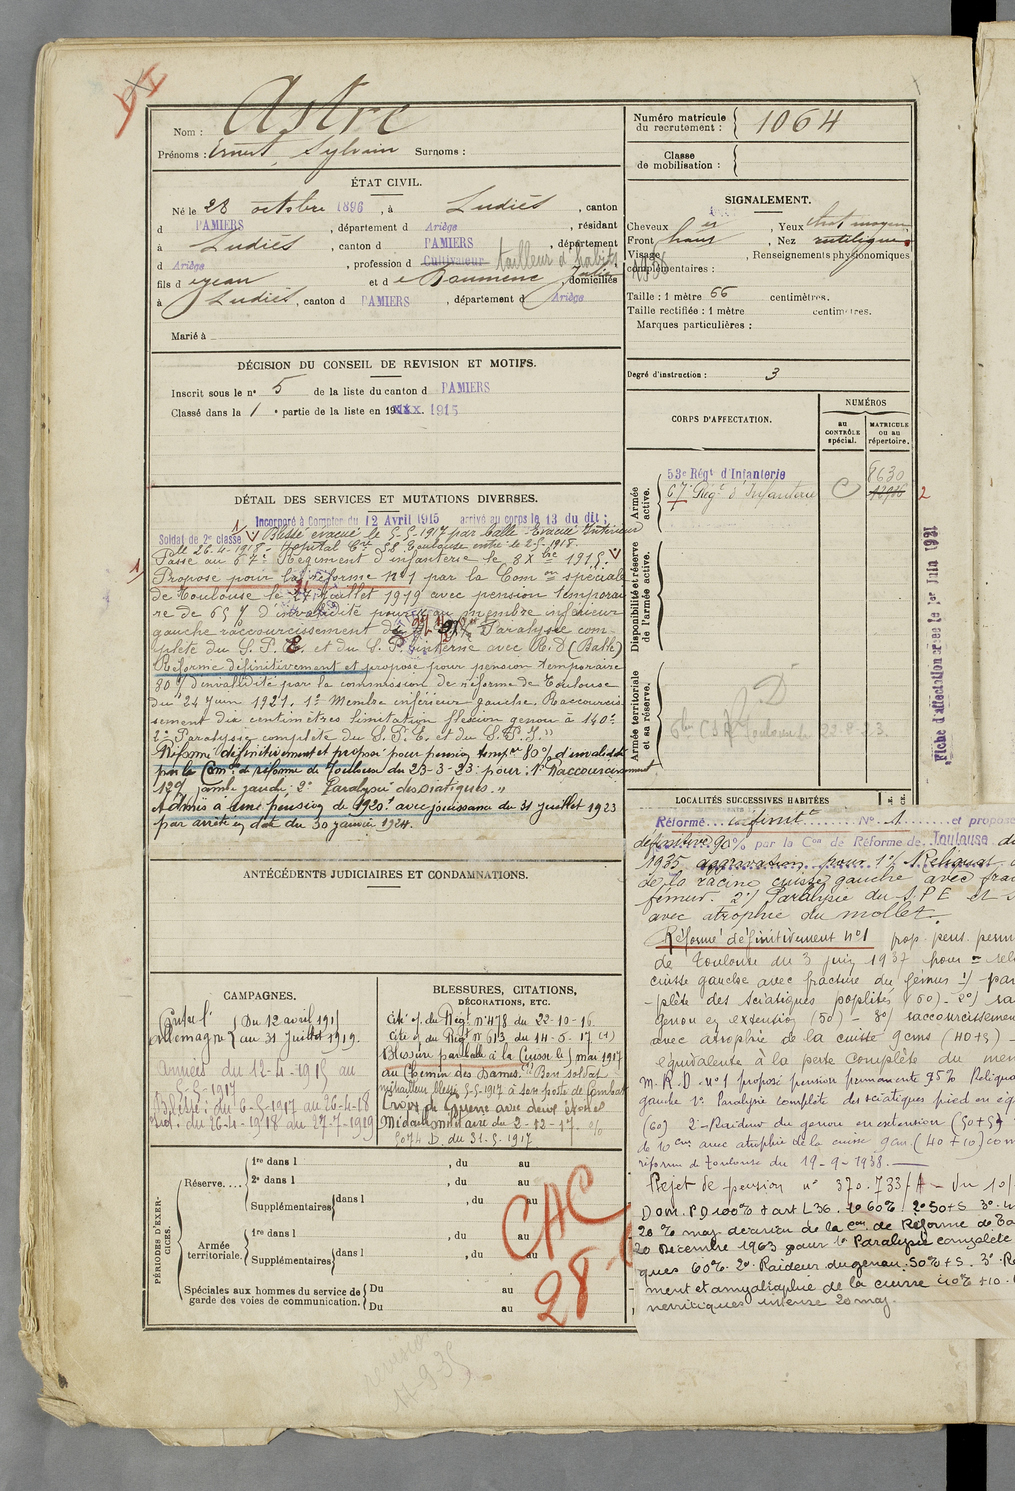 Astre
Nom :
Prénoms : Ernest, Sylvain Surnoms :
Numéro matricule du recrutement : 1064
Classe de mobilisation :
ÉTAT CIVIL.
Né le 28 octobre 1896, à Ludiès, canton
d PAMIERS, département d Ariège, résidant
à Ludiès, canton d PAMIERS, département
d Ariège, profession d Cultivateur tailleur d'habits
fils d e Jean et d e Baumenc Julie, domiciliés
à Ludiès, canton d PAMIERS, département d Ariège
Marié à
SIGNALEMENT.
Cheveux, Yeux
Front haut, Nez rectiligne
Visage, Renseignements physionomiques
complémentaires :
Taille : 1 mètre 66 centimètres.
Taille rectifiée : 1 mètre centimètres.
Marques particulières :
Degré d'instruction : 3
DÉCISION DU CONSEIL DE REVISION ET MOTIFS.
Inscrit sous le n° 5 de la liste du canton d PAMIERS
Classé dans la 1 e partie de la liste en 1915
CORPS D'AFFECTATION.
NUMÉROS
au CONTRÔLE spécial.
MATRICULE ou au répertoire.
Armée active.
53e Régt d'Infanterie
67e Régt d'Infanterie C 8630
2
Disponibilité et réserve de l'armée active.
Armée territoriale et sa réserve.
Toulouse 22-8-23
Fiche d'affectation créée le 1er Juin 1931
DÉTAIL DES SERVICES ET MUTATIONS DIVERSES.
Incorporé à Compter du 12 Avril 1915 arrivé au corps le 13 du dit ;
Soldat de 2e classe Blessé évacué le 5-5-1917 par balle. Evacué Intérieur
le 26-4-1918 - Hopital Cre 58 Toulouse entré le 2-5-1918.
Passé au 67e Régiment d'infanterie le 8 Xbre 1915.
Proposé pour la réforme n°1 par la Com on spéciale
de Toulouse le 27 Juillet 1919 avec pension temporai
re de 65 % d'invalidité pour membre inférieur
gauche raccourcissement de Paralysie com-
plète du S.P.E. et du S.P. interne avec R.D (Balle)
Réformé définitivement et proposé pour pension temporaire
80 % d'invalidité par la commission de réforme de Toulouse
du 24 Juin 1921. 1° Membre inférieur gauche, Raccourcis-
sement dix centimètres limitation flexion genou à 140°.
2° Paralysie complète du S.P.E. et du S.P.I.
Réformé définitivement et proposé pour pension tempre 80 % d'invalidité
par la Com on de réforme de Toulouse du 23-3-23 pour : 1° Raccourcissement
jambe gauche ; 2° Paralysie des sciatiques.
Admis à une pension de 1920f avec jouissance du 31 juillet 1923
par arrêté en date du 30 janvier 1924.
ANTÉCÉDENTS JUDICIAIRES ET CONDAMNATIONS.
LOCALITÉS SUCCESSIVES HABITÉES
Réformé définit t N° 1 et propos
définitive 90% par la Con de Réforme de Toulouse d
1935 aggravation pour 1°/ Reliquat
de la racine cuisse gauche avec frac
fémur. 2°/ Paralysie du S.P.E et
avec atrophie du mollet.
Réformé définitivement n°1 prop. pens. perm
de Toulouse du 3 juin 1937 pour
cuisse gauche avec fracture du fémur 1/ par
plète des sciatiques poplités (60) - 2°/ rai
genou en extension (50) - 3°/ raccourcissemen
avec atrophie de la cuisse 9 cms (40+5) -
équivalente à la perte complète du mem
M. R. D. n°1 proposé pension permanente 95% Reliqua
gauche 1° Paralysie complète des sciatiques pied en éq
(60) 2° Raideur du genou en extension (50+5)
de 10 cms avec atrophie de la cuisse gau (40+10) com
réforme de Toulouse du 19-9-1938.
Rejet de pension n° 370.733/A
Dom. P.D 100% + art L36. 1° 60% 2° 50+5 3°
20 % maj. décision de la Con de Réforme de To
20 Décembre 1963 pour 1° Paralysie complète
ques 60% 2° Raideur du genou : 50% + 5. 3° R
ment et amyotrophie de la cuisse 40% + 10.
névritiques intense 20 maj.
CAMPAGNES.
Contre l'Allemagne { Du 12 avril 1915
au 31 Juillet 1919.
Armées du 12-4-1915 au
5-5-1917
Blessé : du 6-5-1917 au 26-4-18
Int. : du 26-4-1918 au 27-7-1919
BLESSURES, CITATIONS, DÉCORATIONS, ETC.
Cité O/ du Régt n° 478 du 22-10-16
Cité O/ du Régt n° 613 du 14-6-17 (1)
Blessure par balle à la Cuisse le 5 mai 1917
au Chemin des Dames. (1) Bon soldat
mitrailleur blessé 5-5-1917 à son poste de Combat
Croix de Guerre avec deux étoiles
Médaille militaire du 2-12-17.
5074 D. du 31-5-1917
PÉRIODES D'EXERCICES.
Réserve....
1re dans l , du au
2e dans l , du au
Supplémentaires dans l , du au
Armée territoriale.
1re dans l , du au
Supplémentaires dans l , du au
Spéciales aux hommes du service de garde des voies de communication.
Du au
Du au
CAC
28